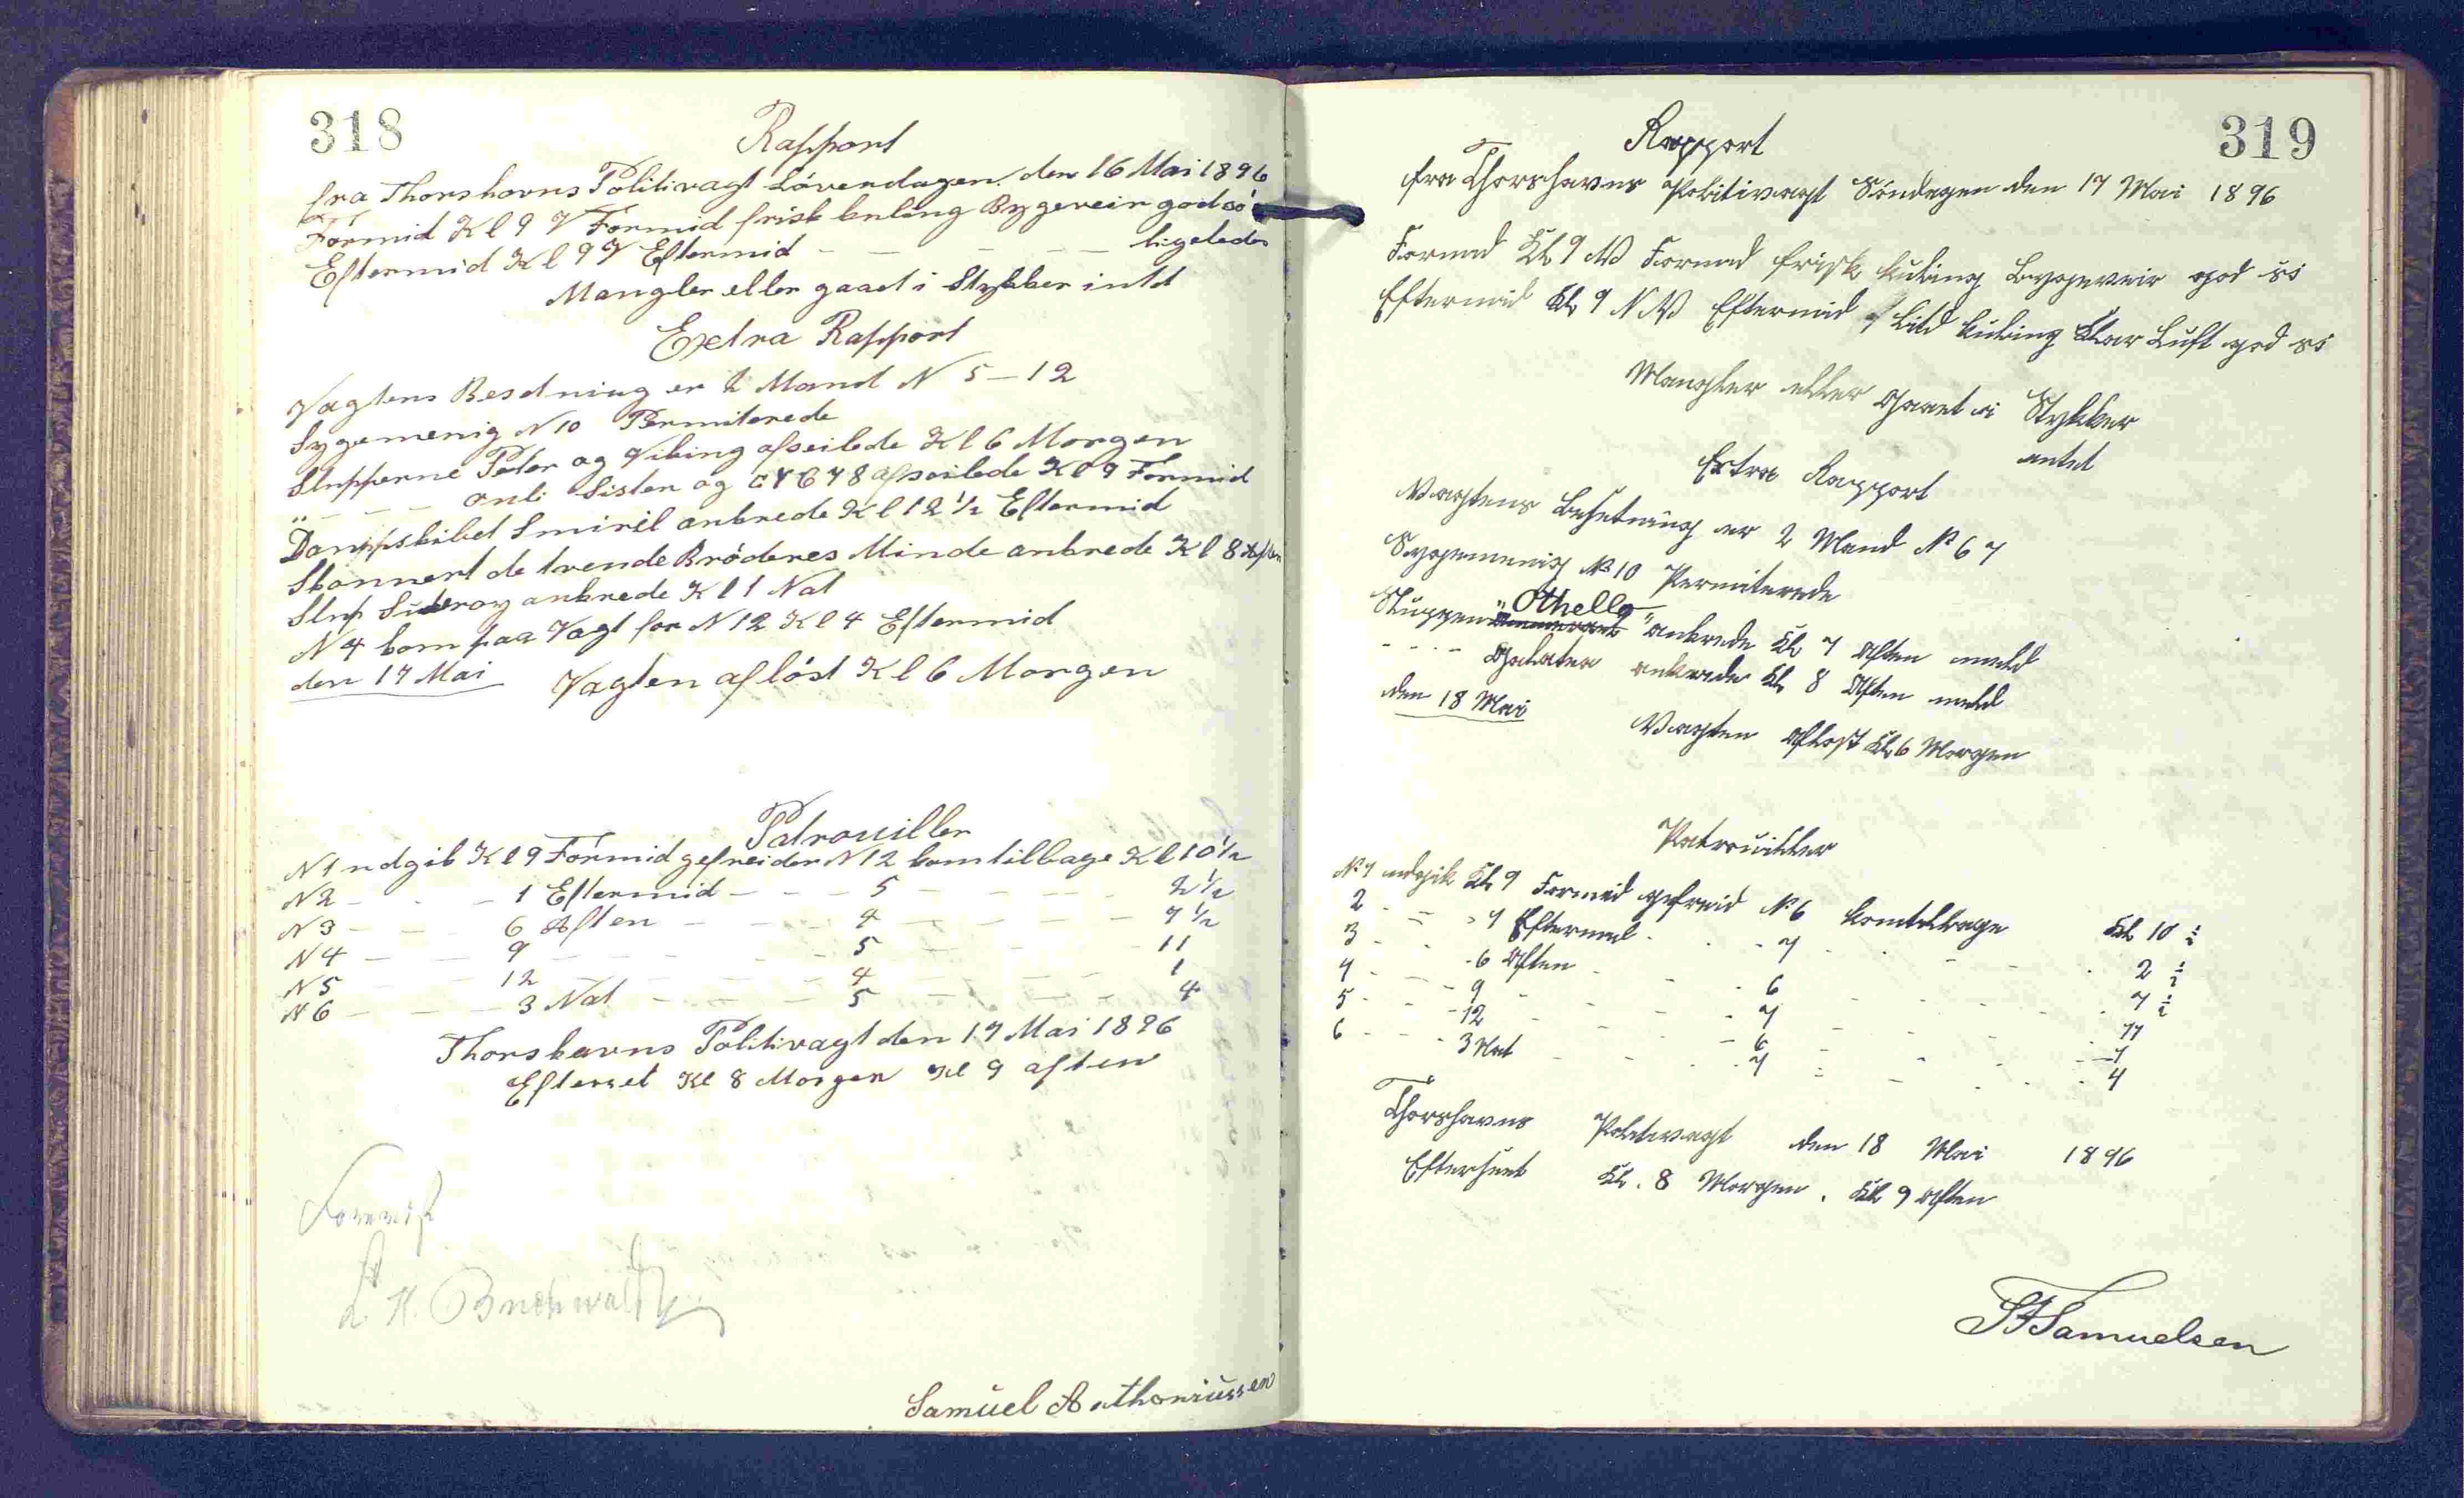 318
Rapport
fra Thorshavns Politivagt Löverdagen den 16 Mai 1896
Formid Kl 9 V Formid frisk kuling Bygeveir god sö
Eftermid Kl 9 V Eftermid — — — — ligeledes
Mangler eller gaaet i Stykker intet
Extra Rapport
Vagtens Besetning er 2 Mand N 5–12
Sygemenig N 10 Permiterede
Slupperne Peter og Viking afseilede Kl 6 Morgen
" — — — onli Sister og afseilede Kl 9 Formid
Dampskibet Smiril ankrede Kl 12 1/2 Eftermid
Skonnert de trende Bröderes Minde ankrede Kl 8 Aften
Slup Suderoy ankrede Kl 1 Nat
N 4 kom paa Vagt for N 12 Kl 4 Eftermid
den 17 Mai Vagten aflöst Kl 6 Morgen
Patrouiller
N 1 udgik Kl 9 Formid gefreider N 12 kom tilbage Kl 10 1/2
N 2 — — — 1 Eftermid — — — 5 — — — — 2 1/2
N 3 — — — 6 Aften — — — 4 — — — — 7 1/2
N 4 — — — 9 — — — — 5 — — — — 11
N 5 — — — 12 — — — — 4 — — — — 1
N 6 — — — 3 Nat — — — 5 — — — — 4
Thorshavns Politivagt den 17 Mai 1896
Efterset Kl 8 Morgen Kl 9 aften
Forevist
L. H. Buchwaldt
Samuel Anthoniussen
319
Rapport
fra Thorshavns Politivagt Söndagen den 17 Mai 1896
Formid Kl 9 W Formid frisk kuling Bygeveir god sö
Eftermid Kl 9 N W Eftermid Lild kuling Klar Luft god sö
Mangler eller gaaet i Stykker
intet
Extra Rapport
Vagtens Besetning er 2 Mand No 6 7
Sygemenig No 10 Permiterede
Sluppen "Othello" ankrede Kl 7 Aften meld
- - - - Galatea ankrede Kl 8 Aften meld
den 18 Mai Vagten aflöst Kl 6 Morgen
Patrouiller
No 1 udgik Kl 9 Formid gefreid No 6 kom tilbage Kl 10 1/2
2 - - - 1 Eftermid - - - 7 - - - - 2 1/2
3 - - - 6 Aften - - - 6 - - - - 7 1/2
4 - - - 9 - - - - 7 - - - - 11
5 - - - 12 - - - - 6 - - - - 1
6 - - - 3 Nat - - - 7 - - - - 4
Thorshavns Politivagt den 18 Mai 1896
Efterseet Kl. 8 Morgen. Kl 9 Aften
Samuelsen